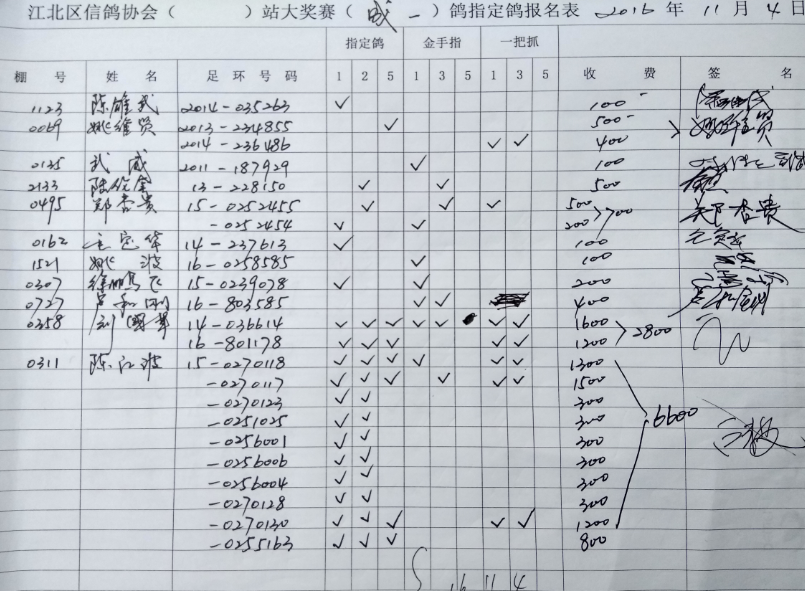 江北区信鸽协会（ ）站大奖赛（成一）鸽指定鸽报名表 2016年11月4日
指定鸽 金手指 一把抓
棚号 姓名 足环号码 1 2 5 1 3 5 1 3 5 收费 签名
1123 陈雄武 2014-035263 ✓ 100
0069 姚维贤 2013-234855 ✓ 500
2014-236486 ✓ ✓ 400
2135 武威 2011-187929 ✓ 100
2133 13-228150 ✓ ✓ 500
0495 郑香贵 15-0252455 ✓ ✓ ✓ 500 郑香贵
-0252454 ✓ ✓ 200 >700
0162 王定华 14-237613 ✓ 100
1521 姚波 16-0258585 ✓ 100
0307 徐鹏飞 15-0239078 ✓ ✓ 200
0727 16-803585 ✓ ✓ 400
0358 14-036614 ✓ ✓ ✓ ✓ ✓ ✓ ✓ 1600
16-801178 ✓ ✓ ✓ ✓ ✓ 1200 >2800
0311 陈江波 15-0270118 ✓ ✓ ✓ ✓ ✓ ✓ 1300
-0270117 ✓ ✓ ✓ ✓ ✓ ✓ 1500
-0270123 ✓ ✓ 300
-0251025 ✓ ✓ 300 6600
-0256001 ✓ ✓ 300
-0256006 ✓ ✓ 300
-0256004 ✓ ✓ 300
-0270128 ✓ ✓ 300
-0270130 ✓ ✓ ✓ ✓ ✓ 1200
-0255163 ✓ ✓ ✓ 800
16 11 4